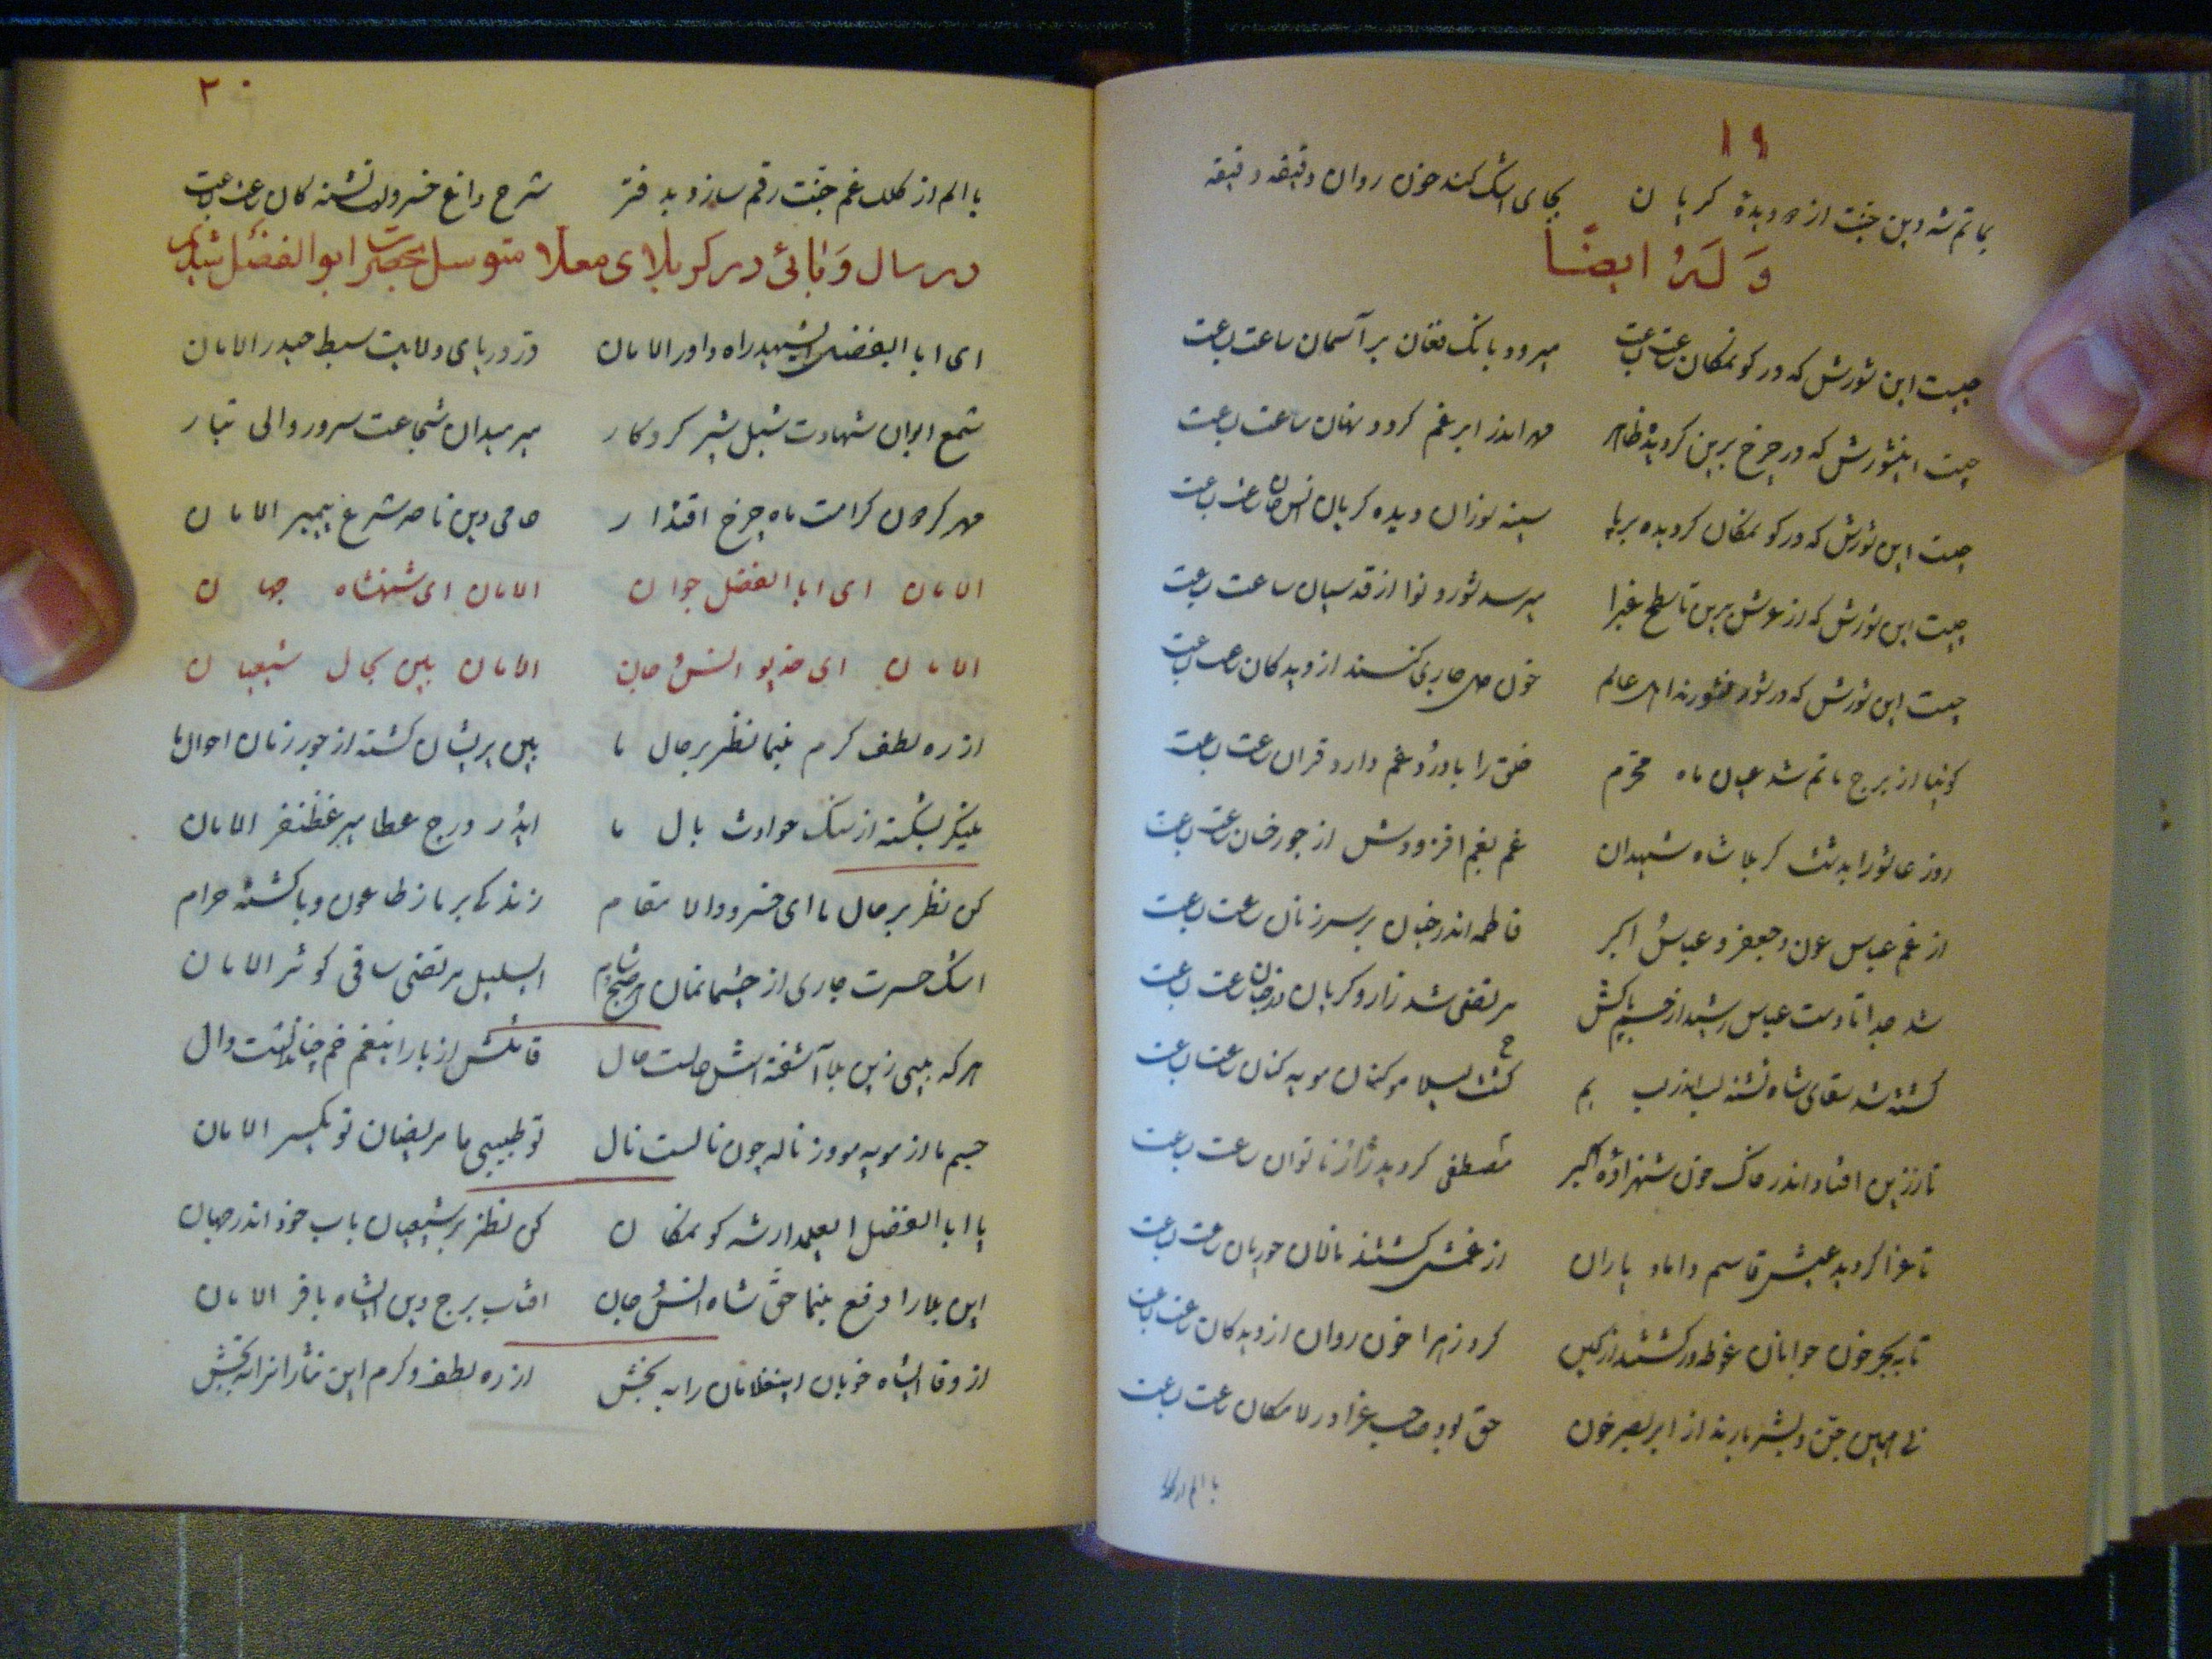 ۱۹
بماتم شه دین جنت از دو دیدهٔ گریان بجای اشک کند خون روان دقیقه دقیقه
وَلَهُ ایضًا
چیست این شورش که در کون مکان ساعت بساعت میرود بانک فغان بر آسمان ساعت بساعت
چیست اینشورش که در چرخ برین گردیده ظاهر مه اندر ابر غم گردد نهان ساعت بساعت
چیست این شورش که در کون مکان گردیده برپا سینه سوزان دیده گریان انس جان ساعت بساعت
چیست این شورش که از عرش برین تا سطح غبرا میرسد شور و نوا از قدسیان ساعت بساعت
چیست این شورش که در شور و نشورند اهل عالم خون دل جاری کنند از دیدگان ساعت بساعت
گوئیا از برج ماتم شد عیان ماه محرم خلق را با درد و غم دارد قران ساعت بساعت
روز عاشورا بدشت کربلا شاه شهیدان غم بغم افزودش از جور خسان ساعت بساعت
از غم عباس عون و جعفر و عباس اکبر فاطمه اندر جنان بر سر زنان ساعت بساعت
شد جدا تا دست عباس رشید از جسم پاکش مرتضی شد زار و گریان در جنان ساعت بساعت
کشته شد سقای شاه تشنه لب از زب یم گشت لیلا مو کنان مویه کنان ساعت بساعت
تا ز زین افتاد اندر خاک خون شهزاده اکبر مصطفی گردید زار ناتوان ساعت بساعت
تا عزا گردید عیش قاسم داماد یاران از غمش گشتند نالان حوریان ساعت بساعت
تا به بحر خون جوانان غوطه ور گشتند از کین کرد زهرا خون روان از دیدگان ساعت بساعت
نی همین جن و بشر بارند از ابر بصر خون حق بود صاحب عزا در لامکان ساعت بساعت
با الم از کلک
۲۰
با الم از کلک غم جنت رقم سازد بدفتر شرح داغ خسرو لب تشنه کان ساعت بساعت
در سال وَبائی در کربلای معلا متوسل بحضرت ابوالفضل شدند
ای ابا الفضل الشهید راه داور الامان در دریای ولایت سبط حیدر الامان
شمع ایوان شهادت شبل شیر کردکار میر میدان شجاعت سرور والی تبار
مهر گردون کرامت ماه چرخ اقتدار حامی دین ناصر شرع پیمبر الامان
الامان ای ابا الفضل جوان الامان ای شهنشاه جهان
الامان ای خدیو انس جان الامان ببین بحال شیعیان
از ره لطف کرم بنما نظر بر حال ما ببین پریشان گشته از جور زمان احوال ما
بنگر بشکسته از سنگ حوادث بال ما ایدر درج عطا میر غضنفر الامان
کن نظر بر حال ما ای خسرو والا مقام زندگی بر ما ز طاعون وبا گشته حرام
اشک حسرت جاری از چشمانمان هر صبح شام السلیل مرتضی ساقی کوثر الامان
هرکه بینی زین بلا آشفته اش حالست حال قامتش از بار اینغم خم چنانست دال
جسم ما از مویه مو و ز ناله چون نالست نال تو طبیبی ما مریضان تو یکسر الامان
یا ابا الفضل العلمدار شه کون مکان کن نظر بر شیعیان باب خود اندر جهان
این بلا را دفع بنما حق شاه انس جان افتاب برج دین الشاه باقر الامان
از وفا الشاه خوبان اینغلامان را به بخش از ره لطف و کرم این